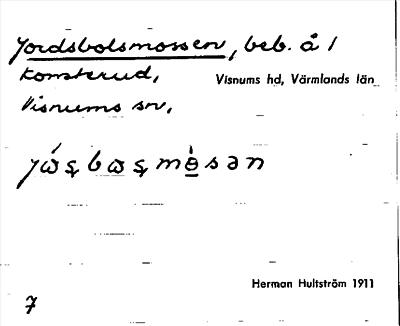 Jordsbolsmossen, beb. å 1
Konsterud, Visnums hd, Värmlands län
Visnums sn,
Herman Hultström 1911
7